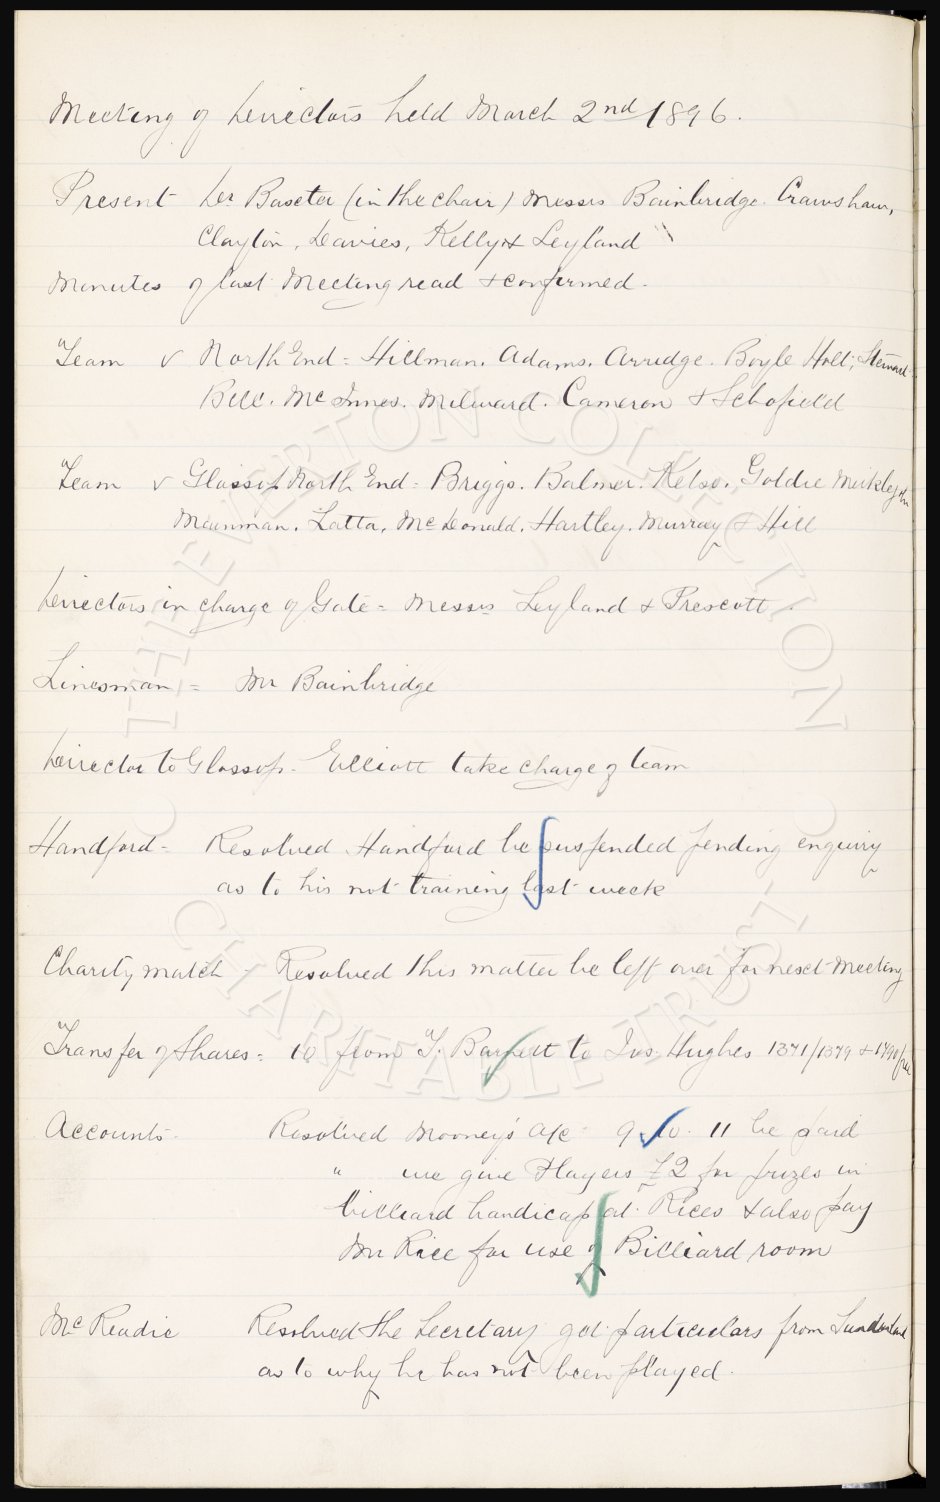 Meeting of Directors held March 2nd 1896.
Present Dr Baxter (in the chair) Messrs Bainbridge. Crawshaw,
Clayton, Davies, Kelly & Leyland
Minutes of last Meeting read & confirmed.
Team v North End = Hillman. Adams. Arridge. Boyle Holt, Stewart
Bell. McInnes. Milward. Cameron & Schofield
Team v Glossop North End = Briggs. Balmer. Kelso. Goldie Meiklejohn
Mainman. Latta. McDonald. Hartley. Murray & Hill
Directors in charge of Gate = Messrs Leyland & Prescott.
Linesman = Mr Bainbridge
Director to Glossop - Elliott take charge of team
Handford - Resolved Handford be suspended pending enquiry
as to his not training last week
Charity match - Resolved this matter be left over for next Meeting
Transfer of Shares = 10 from T. Barnett to Jos Hughes 1371/1379 & 1790
Accounts - Resolved Mooney's a/c 9.10.11 be paid
" we give Players £2 for prizes in
billiard handicap at Rices & also pay
Mr Rice for use of Billiard room
McReadie Resolved the Secretary get particulars from Sunderland
as to why he has not been played.
THE EVERTON COLLECTION
CHARITABLE TRUST